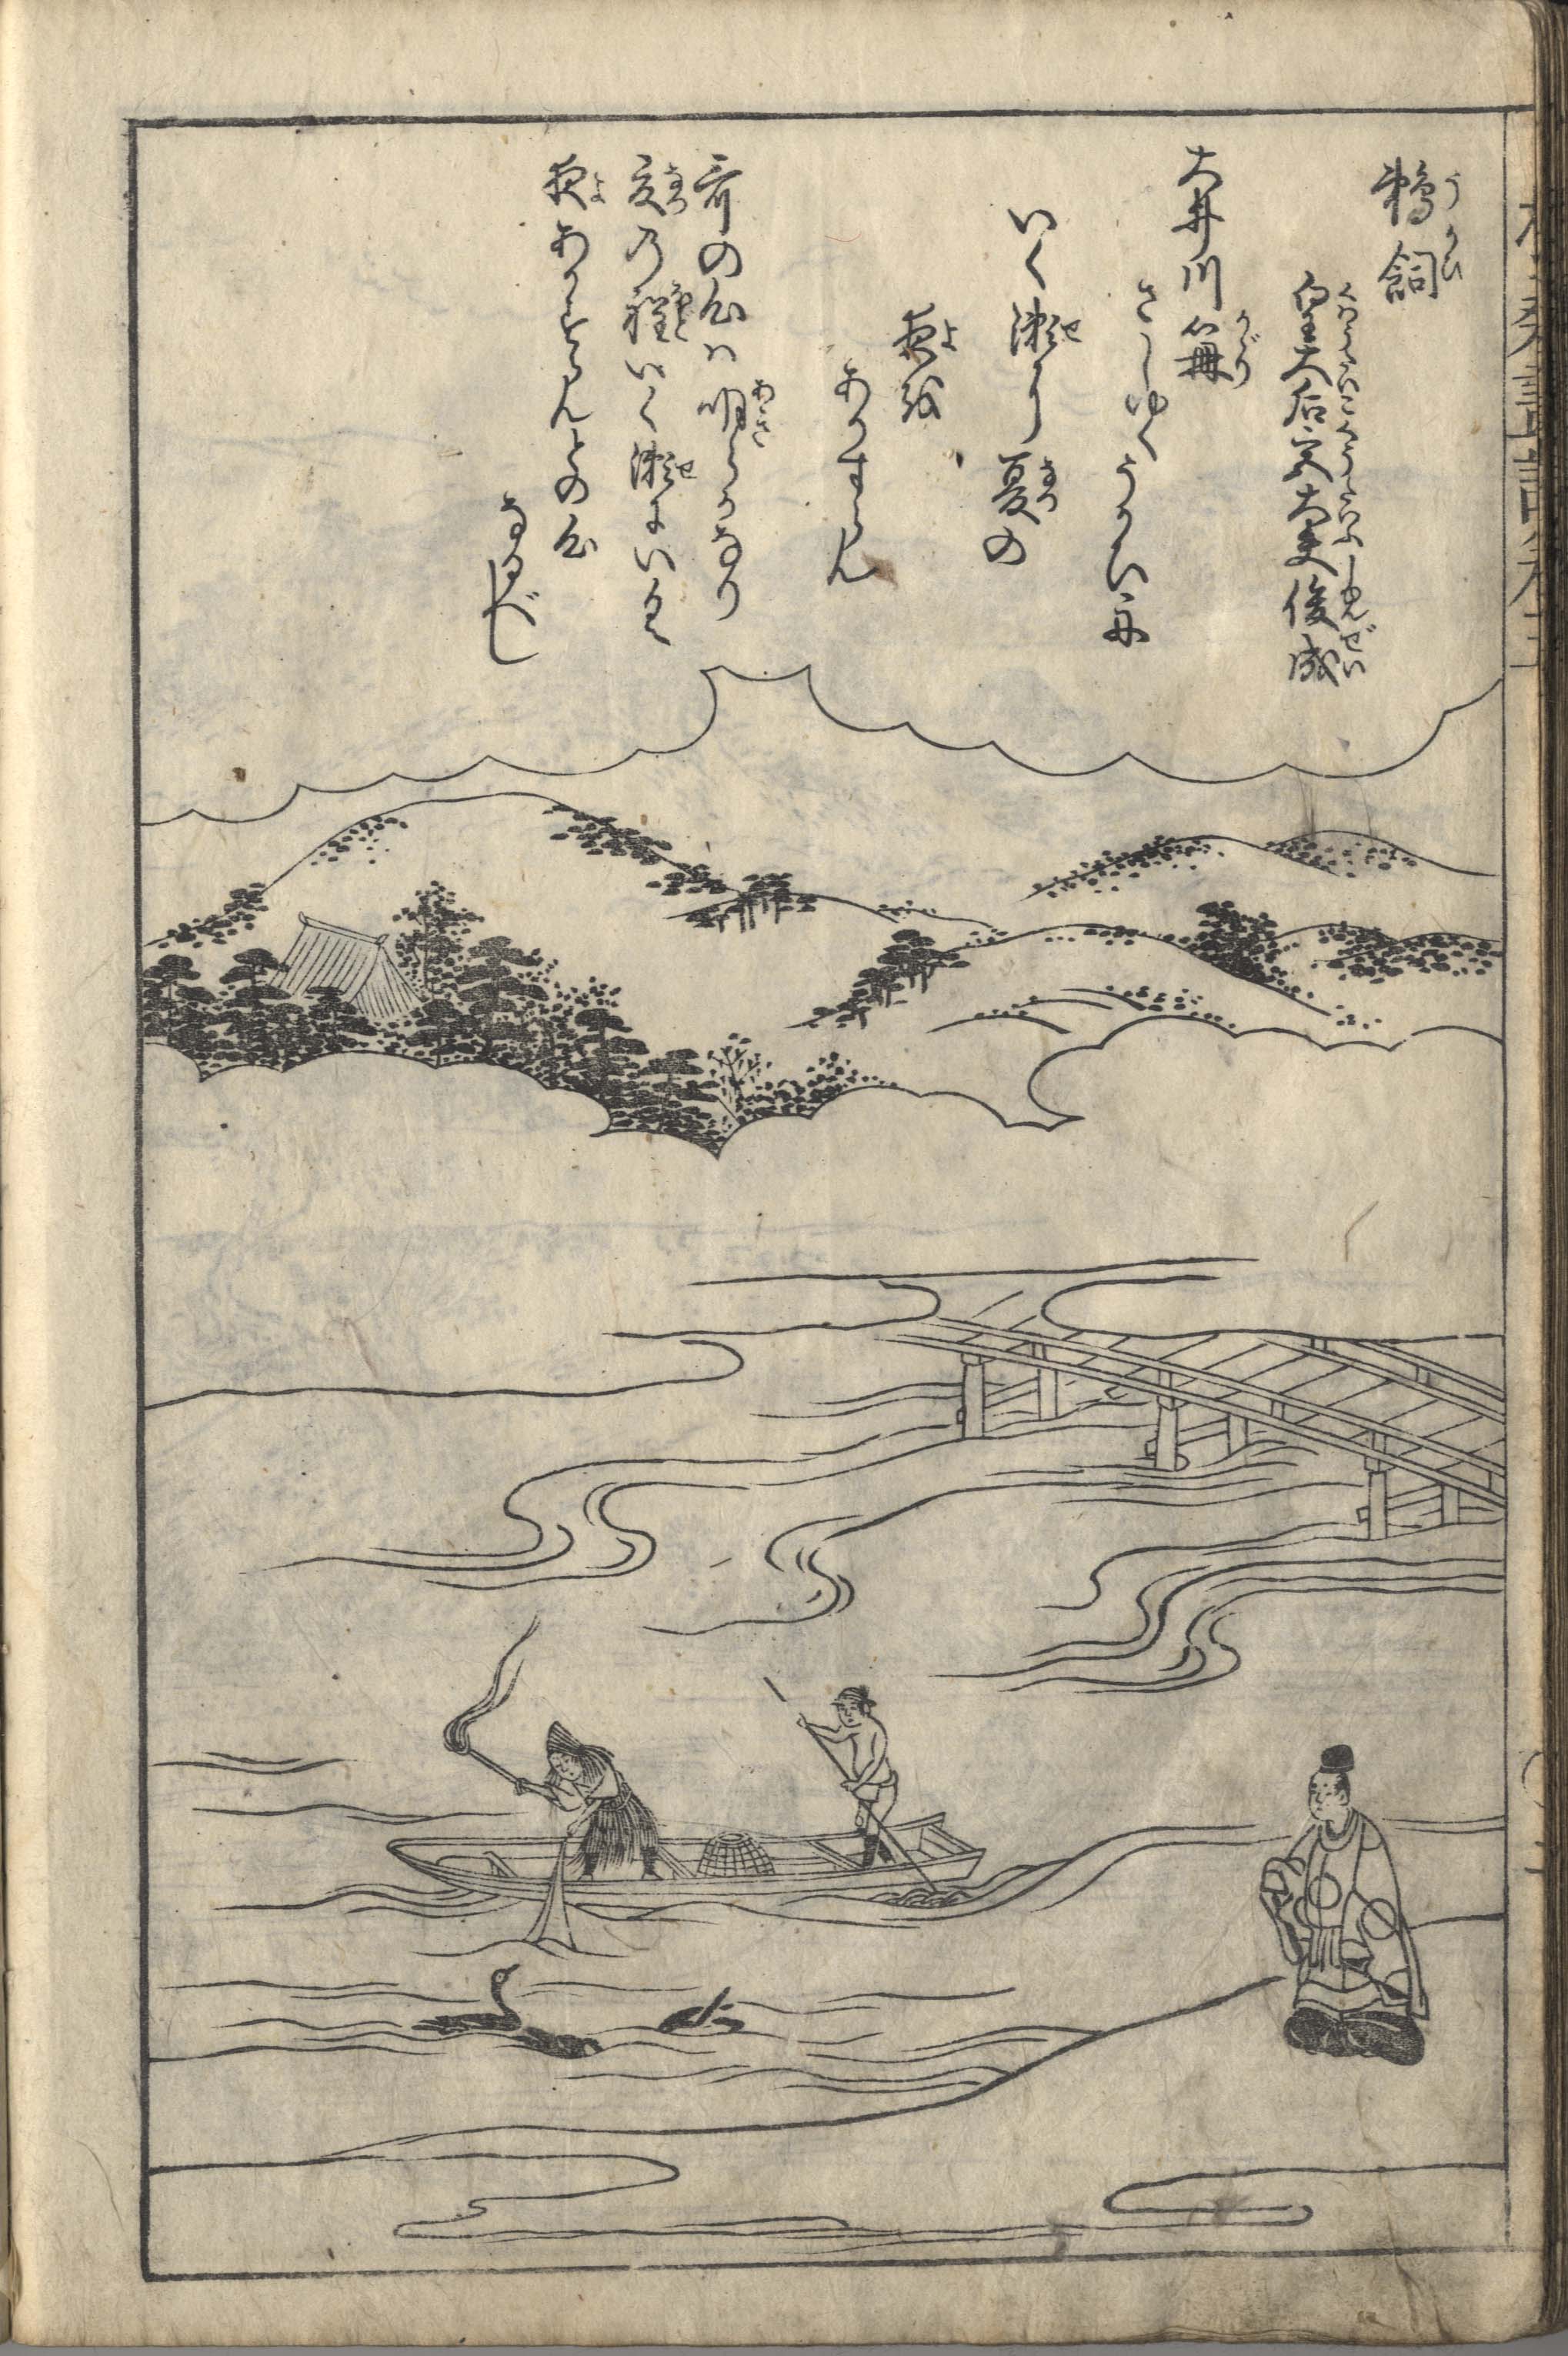 鵜飼
皇太后宮大夫俊成
大井川篝
さしゆくうかひ舟
いく瀬に夏の
夜を
あかすらん
歌の心は明らかなり
夏の程いく瀬にいくよ
夜あかすらんとの心
なるべし